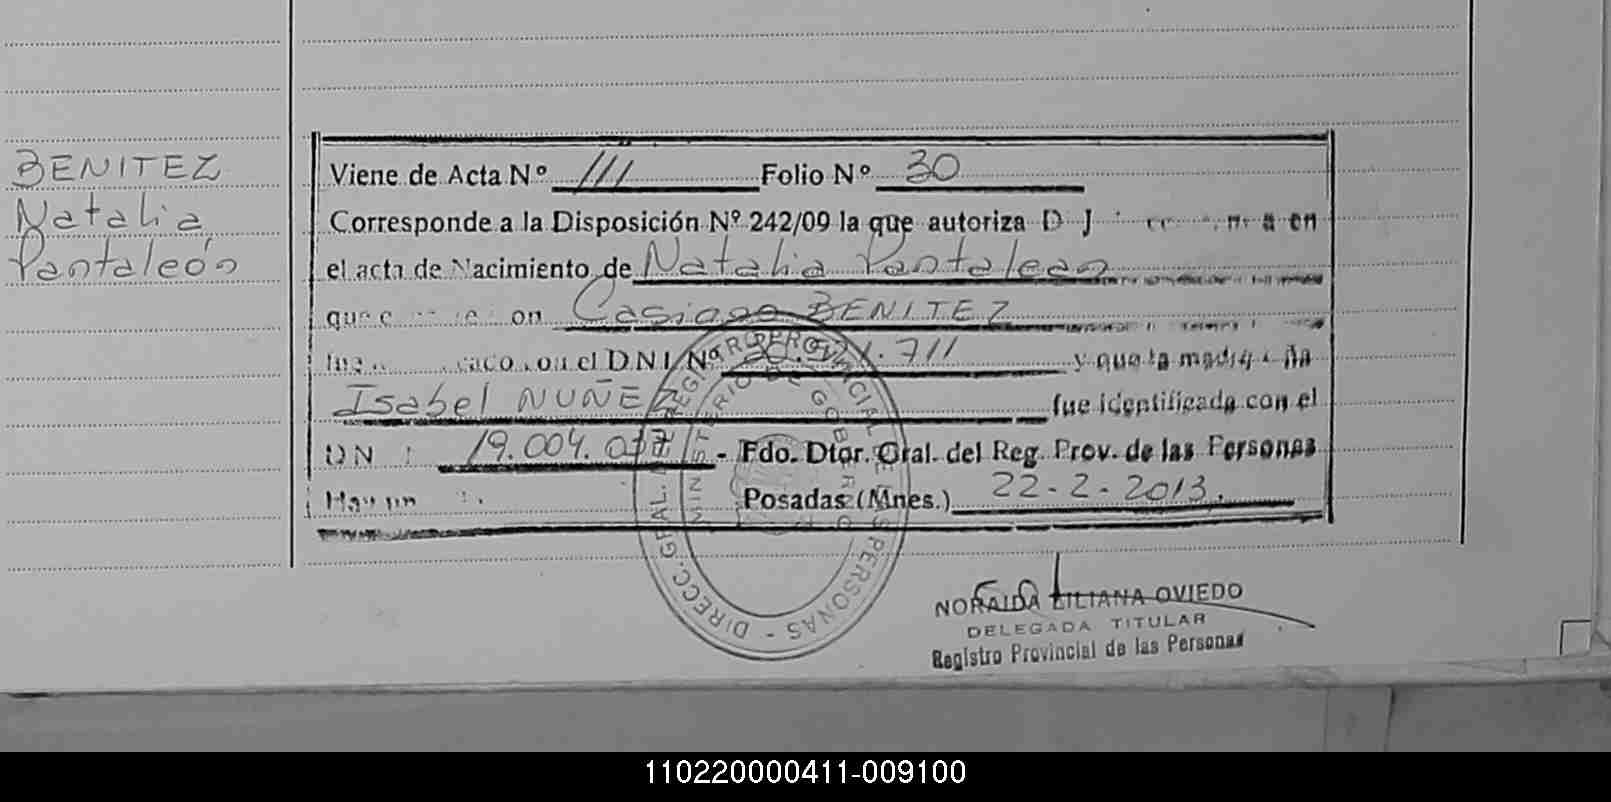 BENITEZ
Natalia
Pantaleón
Viene de Acta Nº 111 Folio Nº 30
Corresponde a la Disposición Nº 242/09 la que autoriza D J en
el acta de Nacimiento de Natalia Pantaleon
que on Casiano BENITEZ
el DNI Nº .711 y que la madre
Isabel NUÑEZ fue identificada con el
DN 19.004.077 - Fdo. Dtor. Gral. del Reg. Prov. de las Personas
Posadas (Mnes.) 22-2-2013.
DIRECC. GRAL. DEL REGISTRO PROVINCIAL DE LAS PERSONAS -
MINISTERIO DE GOBIERNO
NORAIDA LILIANA OVIEDO
DELEGADA TITULAR
Registro Provincial de las Personas
110220000411-009100